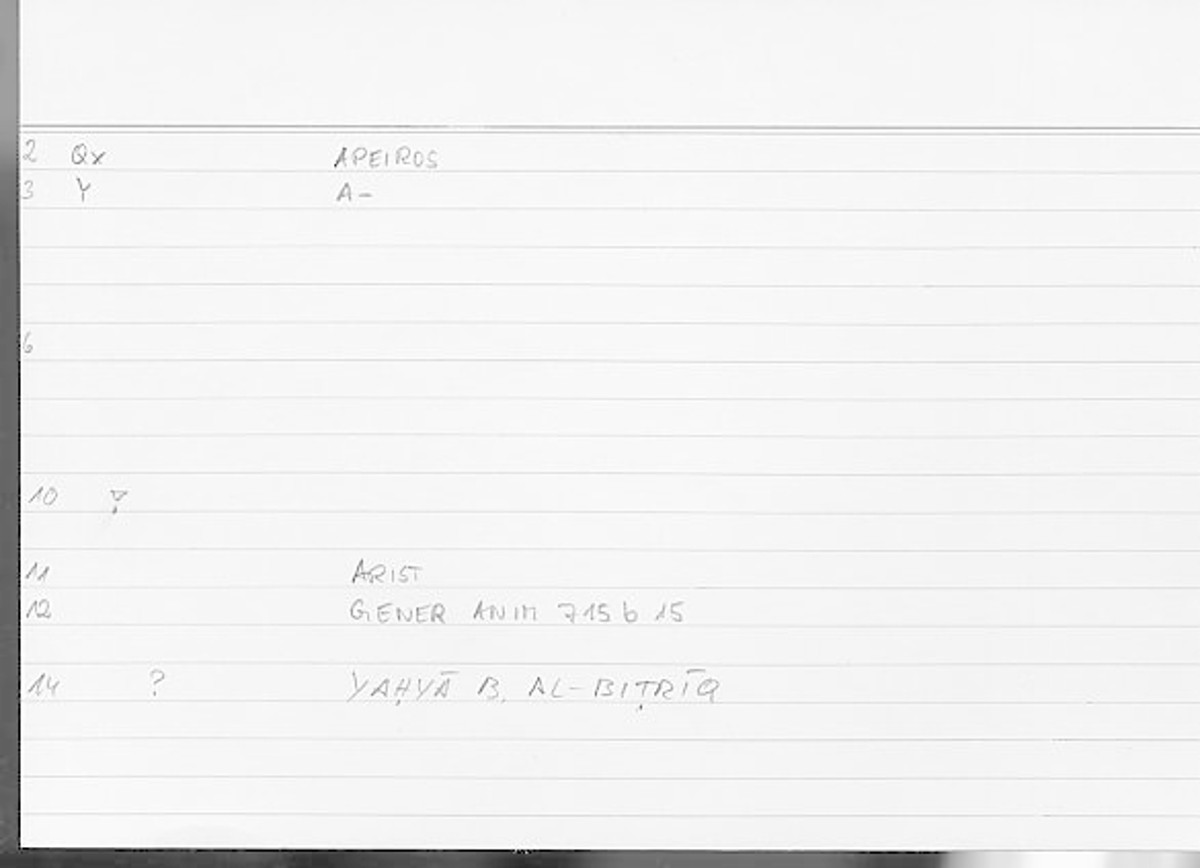 2 Qx APEIROS
3 Y A-
6
10
11 ARIST
12 GENER ANIM 715 b 15
14 ? YAḤYĀ B. AL-BIṬRĪQ